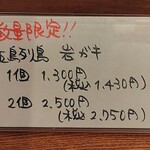 数量限定!!
五島列島 岩ガキ
1個 1,300円
(税込1,430円)
2個 2,500円
(税込2,750円)